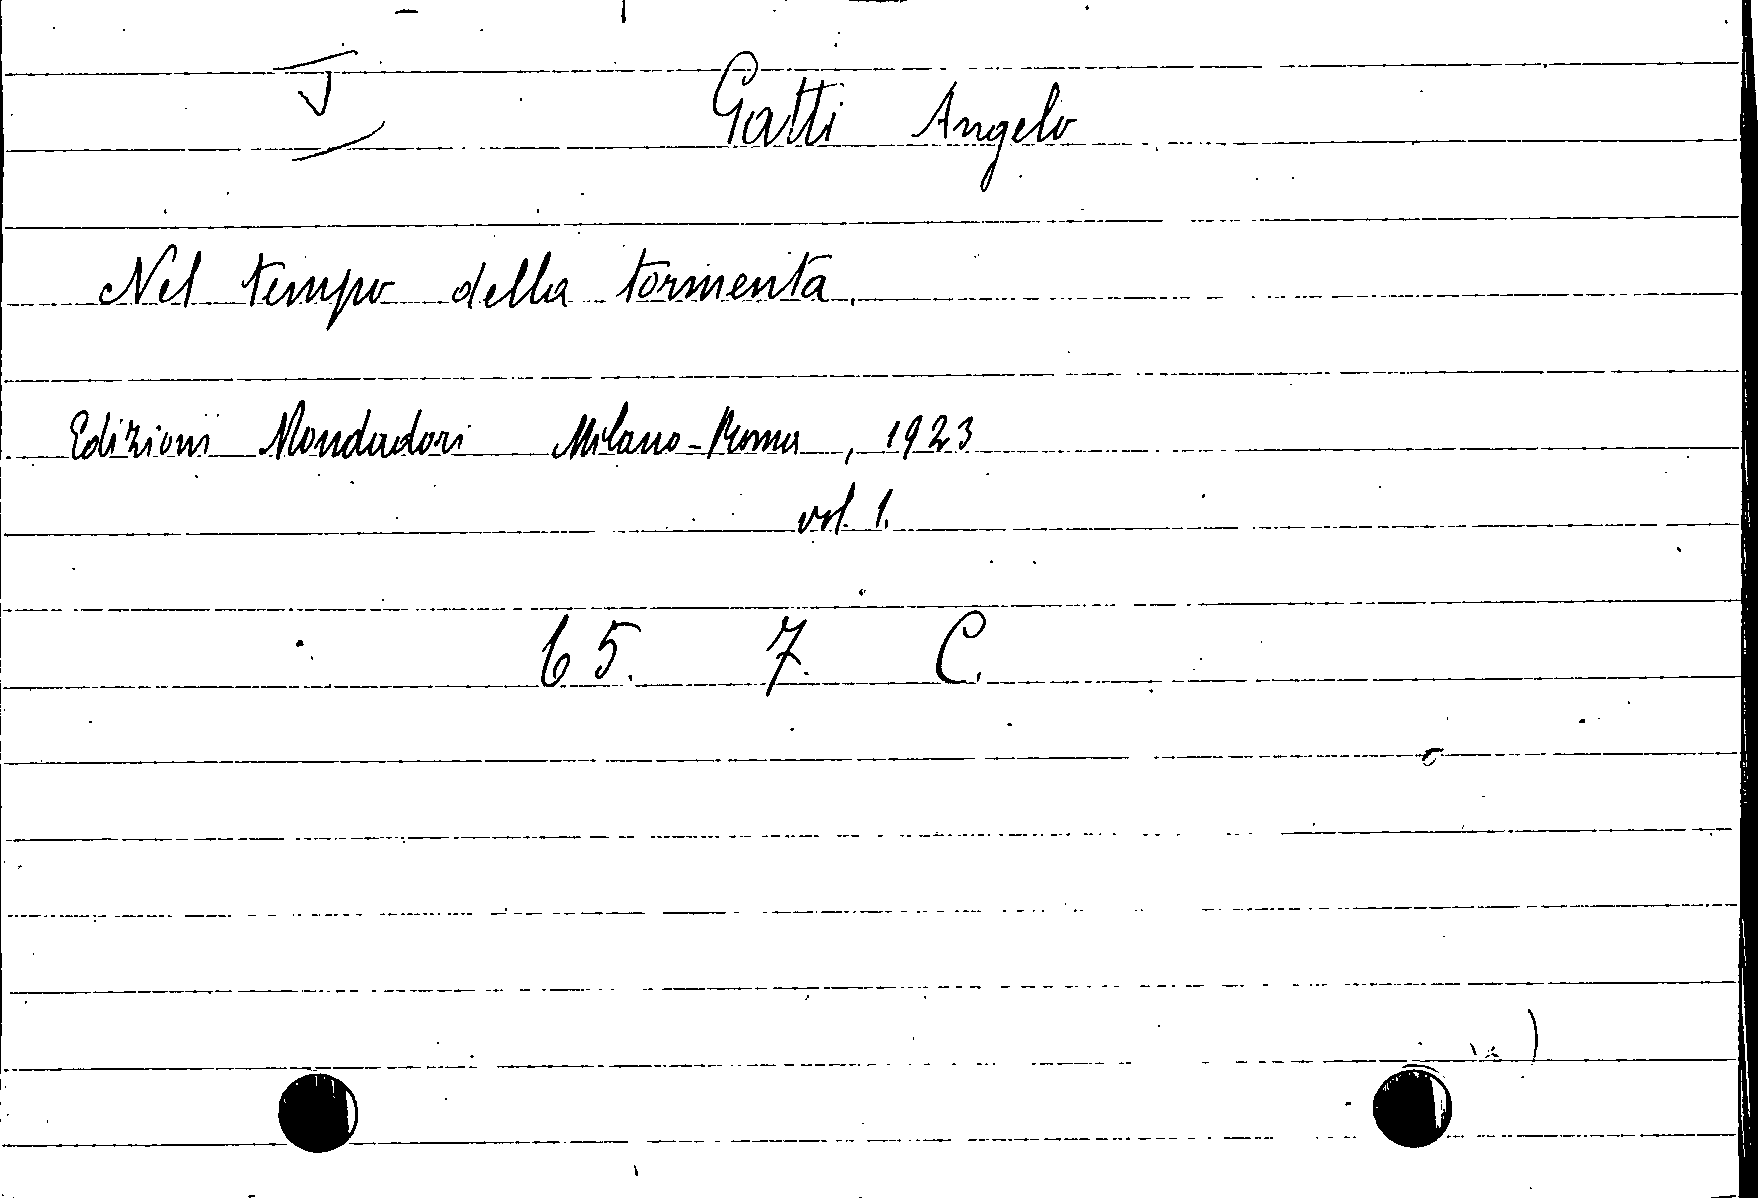 Gatti Angelo
Nel tempo della tormenta.
Edizioni Mondadori Milano-Roma, 1923
vol. 1.
65. 7. C.